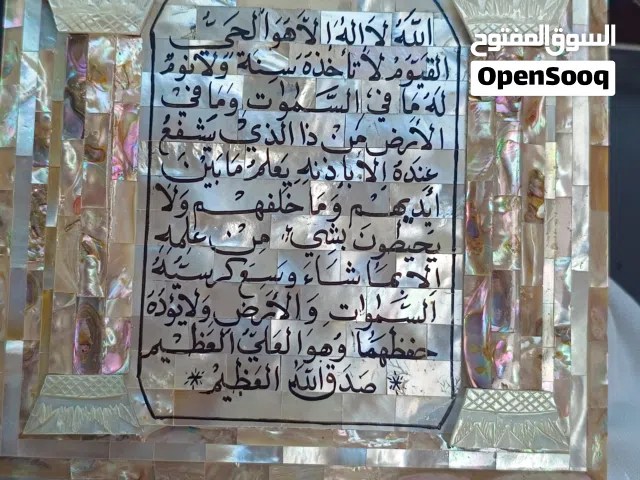 الله لا اله الا هو الحي
القيوم لا تأخذه سنة ولا نوم
له ما في السموات وما في
الارض من ذا الذي يشفع
عنده الا باذنه يعلم ما بين
أيديهم وما خلفهم ولا
يحيطون بشيء من علمه
الا بما شاء وسع كرسيه
السموات والارض ولا يؤده
حفظهما وهو العلي العظيم
* صدق الله العظيم *
السوق المفتوح
OpenSooq